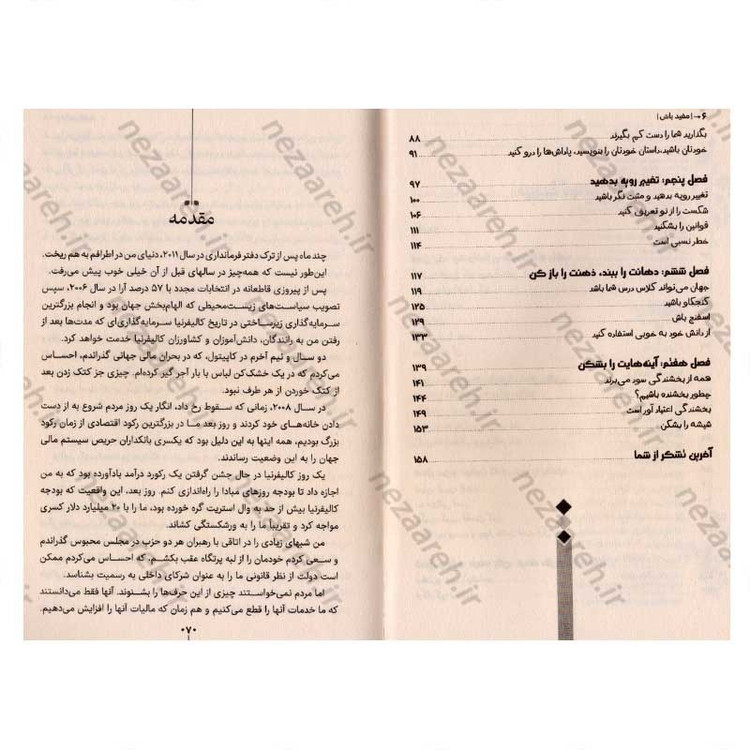 ۶ → | مفید باش |
بگذارید شما را دست کم بگیرند ۸۸
خودتان باشید، داستان خودتان را بنویسید، پاداش‌ها را درو کنید ۹۱
فصل پنجم: تغییر رویه بدهید ۹۷
تغییر رویه بدهید و مثبت نگر باشید ۱۰۰
شکست را از نو تعریف کنید ۱۰۶
قوانین را بشکنید ۱۱۱
خطر نسبی است ۱۱۴
فصل ششم: دهانت را ببند، ذهنت را باز کن ۱۱۷
جهان می‌تواند کلاس درس شما باشد ۱۱۹
کنجکاو باشید ۱۲۵
اسفنج باش ۱۲۹
از دانش خود به خوبی استفاده کنید ۱۳۳
فصل هفتم: آینه‌هایت را بشکن ۱۳۹
همه از بخشندگی سود می‌برند ۱۴۱
چطور بخشنده باشیم؟ ۱۴۴
بخشندگی اعتیاد آور است ۱۴۹
شیشه را بشکن ۱۵۳
آخرین تشکر از شما ۱۵۸
مقدمه
چند ماه پس از ترک دفتر فرمانداری در سال ۲۰۱۱، دنیای من در اطرافم به هم ریخت.
این‌طور نیست که همه‌چیز در سالهای قبل از آن خیلی خوب پیش می‌رفت.
پس از پیروزی قاطعانه در انتخابات مجدد با ۵۷ درصد آرا در سال ۲۰۰۶، سپس
تصویب سیاست‌های زیست‌محیطی که الهام‌بخش جهان بود و انجام بزرگترین
سرمایه‌گذاری زیرساختی در تاریخ کالیفرنیا سرمایه‌گذاری‌ای که مدت‌ها بعد از
رفتن من به رانندگان، دانش‌آموزان و کشاورزان کالیفرنیا خدمت خواهد کرد.
دو سال و نیم آخرم در کاپیتول، که در بحران مالی جهانی گذراندم، احساس
می‌کردم که در یک خشک‌کن لباس با بار آجر گیر کرده‌ام. چیزی جز کتک زدن بعد
از کتک خوردن از هر طرف نبود.
در سال ۲۰۰۸، زمانی که سقوط رخ داد، انگار یک روز مردم شروع به از دست
دادن خانه‌های خود کردند و روز بعد ما در بزرگترین رکود اقتصادی از زمان رکود
بزرگ بودیم، همه اینها به این دلیل بود که یکسری بانکداران حریص سیستم مالی
جهان را به این وضعیت رساندند.
یک روز کالیفرنیا در حال جشن گرفتن یک رکورد درآمد بادآورده بود که به من
اجازه داد تا بودجه روزهای مبادا را راه‌اندازی کنم. روز بعد، این واقعیت که بودجه
کالیفرنیا بیش از حد به وال استریت گره خورده بود، ما را با ۲۰ میلیارد دلار کسری
مواجه کرد و تقریباً ما را به ورشکستگی کشاند.
من شبهای زیادی را در اتاقی با رهبران هر دو حزب در مجلس محبوس گذراندم
و سعی کردم خودمان را از لبه پرتگاه عقب بکشم. که احساس می‌کردم ممکن
است دولت از نظر قانونی ما را به عنوان شرکای داخلی به رسمیت بشناسد.
اما مردم نمی‌خواستند چیزی از این حرف‌ها را بشنوند. آنها فقط می‌دانستند
که ما خدمات آنها را قطع می‌کنیم و هم زمان که مالیات آنها را افزایش می‌دهیم.
۰۷۰
nezaareh.ir